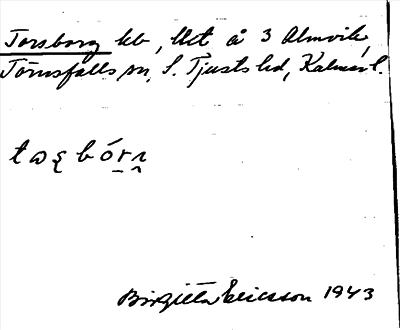 Torsborg hb, llet å 3 Almvik,
Törnsfalls sn, S. Tjusts hd, Kalmar l.
Birgitta Ericsson 1943